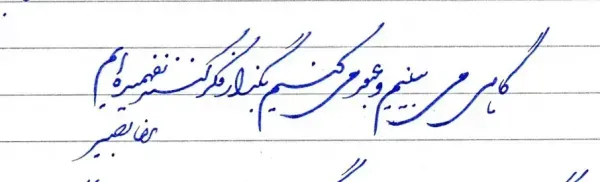 گاهی می بینیم و عبور می کنیم بگذار فکر کنند نفهمیده ایم
رضا بصیر